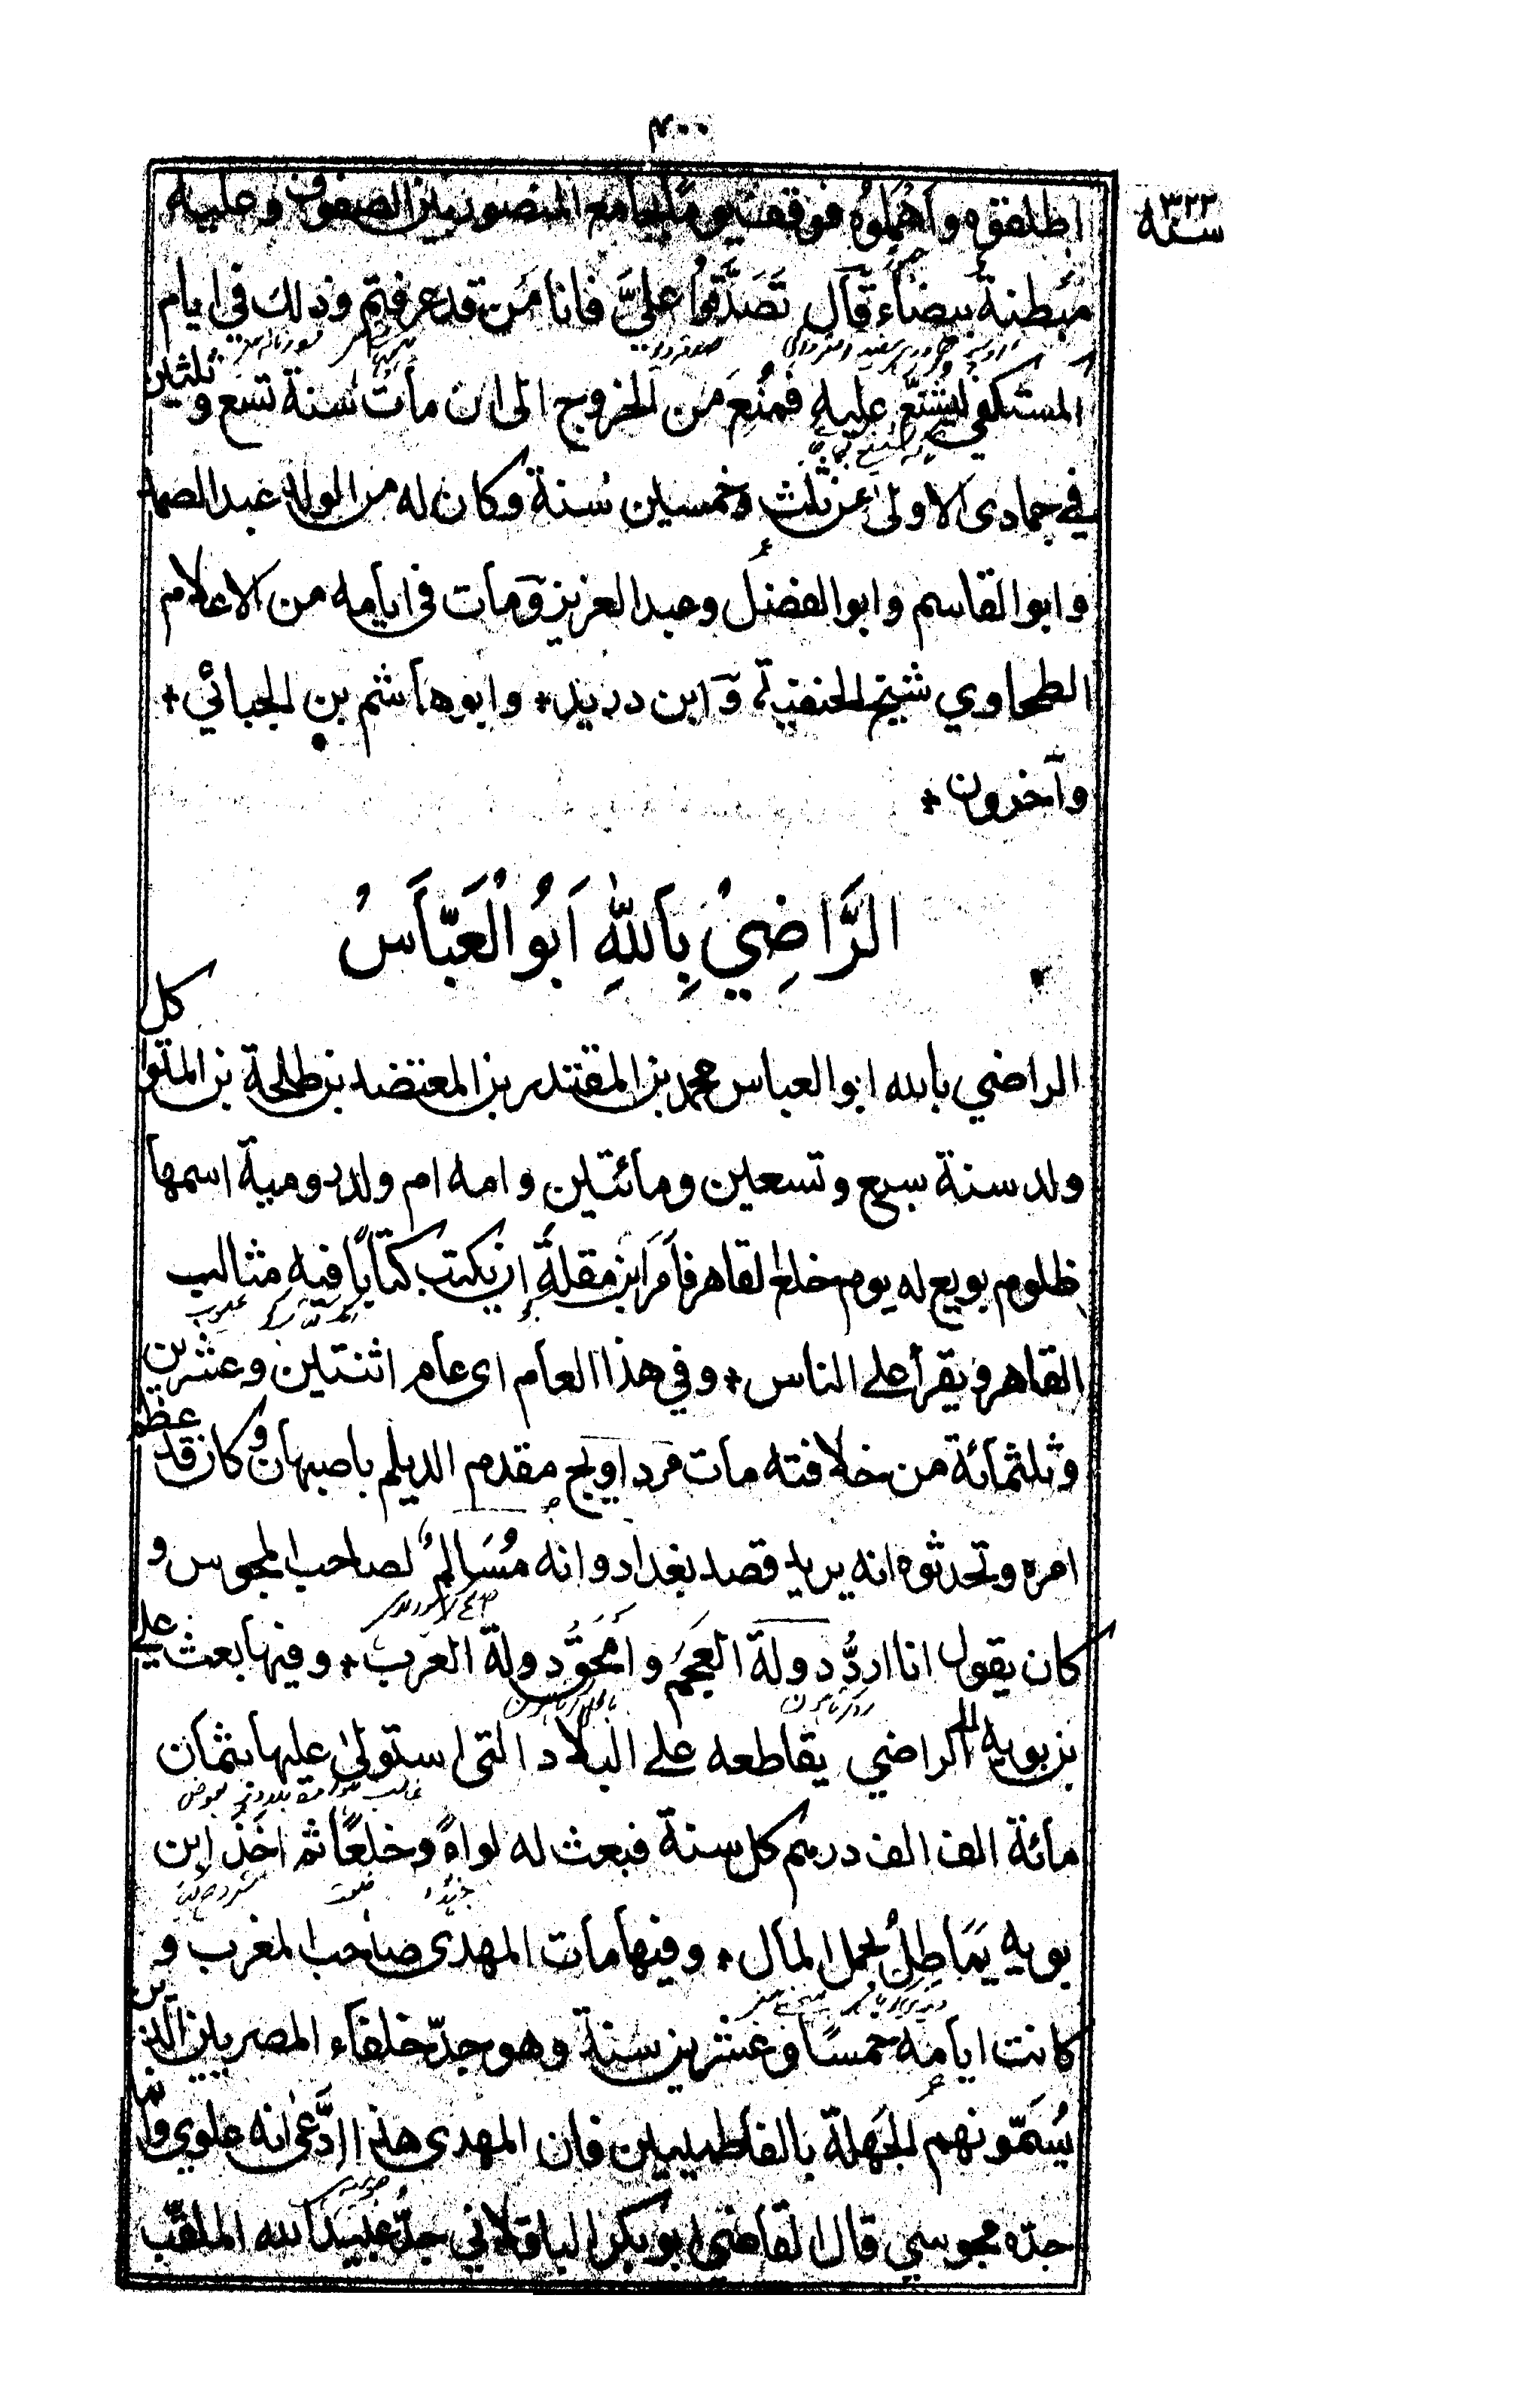 ٤٠٠
سنة ٣٢٣
اطلقوه واهملوه فوقف يوما بجامع المنصور بين الصفوف وعليه
مبطنة بيضاء قال تَصَدَّقُوا عليَّ فانا مَن قد عرفتم وذلك في ايام
المستكفي ليشنّع عليه فمُنِعَ من الخروج الى ان مات سنة تسع وثلثين
في جمادى الاولى عن ثلث وخمسين سنة وكان له من الولد عبد الصمد
وابو القاسم وابو الفضل وعبد العزيز ومات في ايامه من الاعلام
الطحاوي شيخ الحنفية وابن دريد + وابو هاشم بن الجبائي +
وآخرون +
الرَّاضِيْ بِاللّٰهِ اَبُو الْعَبَّاسُ
الراضي بالله ابو العباس محمد بن المقتدر بن المعتضد بن طلحة بن المتوكل
ولد سنة سبع وتسعين ومائتين وامه ام ولد رومية اسمها
ظلوم بويع له يوم خلع القاهر فأمر ابن مقلة ان يكتب كتابًا فيه مثالب
القاهر ويقرأ على الناس + وفي هذا العام اى عام اثنتين وعشرين
وثلثمائة من خلافته مات مرداويج مقدم الديلم باصبهان وكان قد عظم
امره وتحدثوه انه يريد قصد بغداد وانه مُسَالِمٌ لصاحب المجوس و
كان يقول انا اردُّ دولة العجم وامحق دولة العرب + وفيها بعث علي
بن بويه الى الراضي يقاطعه على البلاد التى استولى عليها بثمان
مائة الف الف درهم كل سنة فبعث له لواءً وخلعًا ثم اخذ ابن
بويه يماطل بحمل المال + وفيها مات المهدى صاحب المغرب و
كانت ايامه خمسًا وعشرين سنة وهو جدّ خلفاء المصريين الذين
يُسَمّونهم الجَهلة بالفاطميين فان المهدى هذا ادَّعى انه علوي وانما
جدّه مجوسي قال القاضي ابو بكر الباقلاني جدّ عبيد الله الملقّب